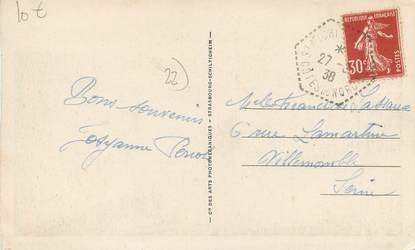 10 €
22)
Bons souvenirs
Josyanne
6 rue Lamartine
Villemomble
Seine
Cie DES ARTS PHOTOMÉCANIQUES - STRASBOURG-SCHILTIGHEIM
RÉPUBLIQUE FRANÇAISE
30c
POSTES
27
38
CÔTES DU NORD